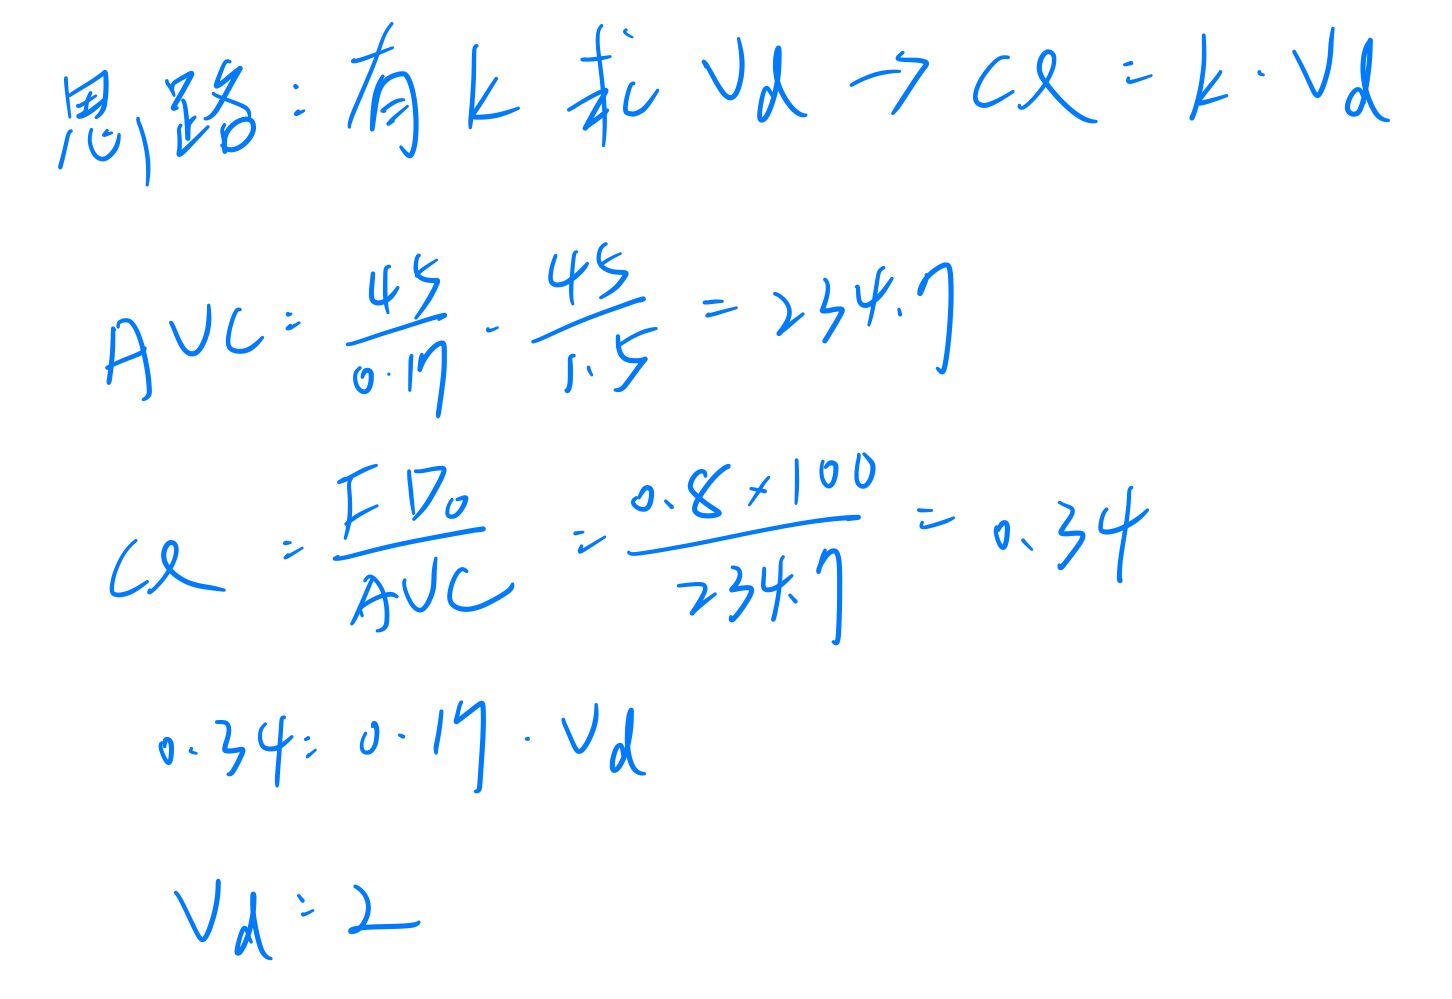 思路：有 k 求 Vd → Cl = k · Vd
AUC = 45/0.17 - 45/1.5 = 234.7
Cl = FD₀/AUC = 0.8×100/234.7 = 0.34
0.34 = 0.17 · Vd
Vd = 2